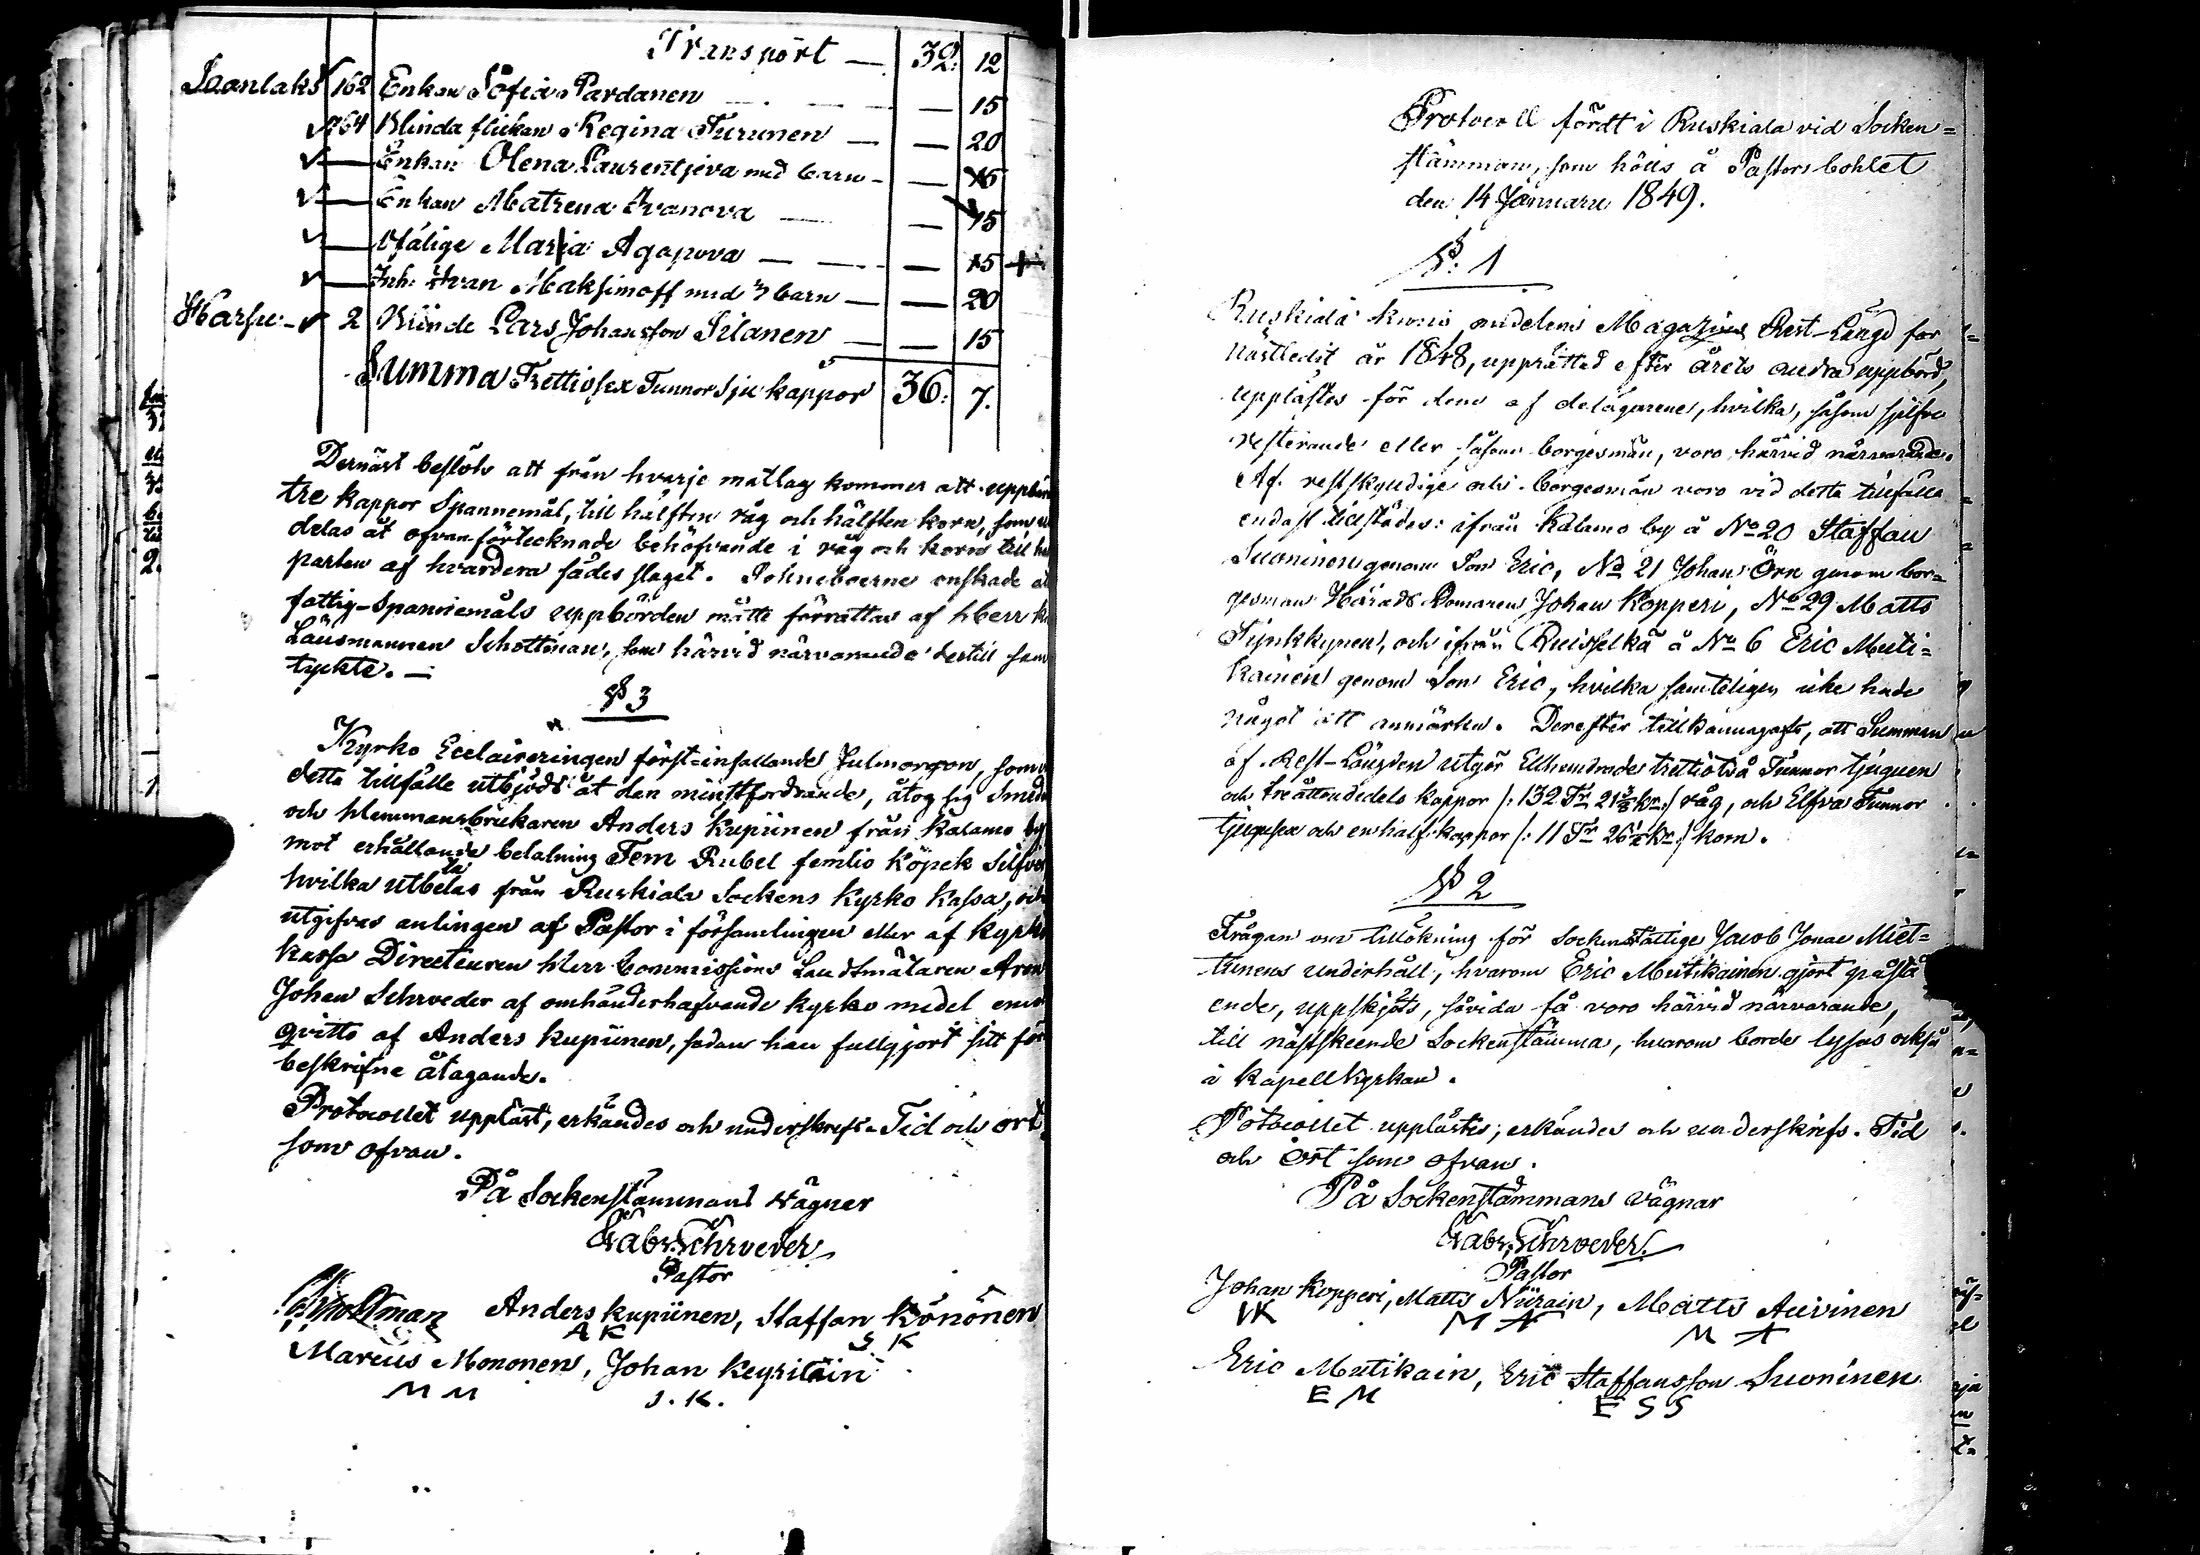 Transport — 32: 12
Jaanlaks 162 Enkan Sofia Pardanen — 15
164 Blinda flickan Regina Turunen — 20
Enkan Olena Laurentjeva med barn — 15
Enkan Matrena Ivanova — 15
Ufålige Maria Agapova — 15
Inh: Ivan Maksimoff med 3 barn — 20
Harsu 2 Blinde Lars Johansson Silanen — 15
Summa Trettiosex Tunnor sju kappor 36: 7.
Dernäst beslöts att från hvarje matlag kommer att uppbär
tre kappor Spannemål, till hälften råg och hälften korn, som
delas åt ofvanförtecknade behöfvande i råg och korn till
parten af hvardera sädes slaget. Sockneboerne önskade
fattig-Spannemåls uppbörden måtte förrättas af Herr
Länsmannen Schottman, som härvid närvarande dertill sam
tyckte. —
§ 3
Kyrko Eclaireringen först-infallande Julmorgon, som
detta tillfälle utbjöds åt den minstfordrande, åtog sig
och Hemmansbrukaren Anders Kupiinen från Kalamo by
mot erhållande betalning Fem Rubel femtio Kopek Silfver
hvilka utbetalas från Ruskiala Sockens Kyrko Kassa, och
utgifvas antingen af Pastor i församlingen eller af Kyrko
Kassa Directeuren Herr Commissions Landtmätaren Aron
Johan Schroeder af omhänderhafvande kyrko medel emot
qvitto af Anders Kupiinen, sedan han fullgjort sitt för
beskrifne åtagande.
Protocollet uppläst, erkändes och underskrefs. Tid och ort
som ofvan.
På Sockenstämmans vägnar
Gabr. Schroeder
Pastor
Schottman Anders Kupiinen, Staffan Könönen
A K S K
Marcus Mononen, Johan Keyritäin
M M J. K.
Protocoll fördt i Ruskiala vid Socken=
stämman, som hölls å Pastorsbohlet
den 14 Januarii 1849.
§: 1
Ruskiala krono andelens Magazins Rest-Längd för
nästledit år 1848, upprättad efter årets andra uppbörd,
upplästes för dem af delägarene, hvilka, såsom sjelfve
resterande eller såsom borgesmän, voro härvid närvarande.
Af restskyldige och borgesmän voro vid detta tillfälle
endast tillstädes: ifrån Kalamo by å No 20 Staffan
Suoninen genom Son Eric, No 21 Johan Örn genom bor=
gesman Härads Domaren Johan Kopperi, No 29 Matts
Tynkkynen, och ifrån Ruisselkä å No 6 Eric Muti=
kainen genom Son Eric, hvilka samteligen icke hade
något att anmärka. Derefter tillkännagafs, att Summan
af Rest-Längden utgör Etthundrade trettiotvå Tunnor tjuguen
och tre åttondedels kappor /: 132 Tr 21 3/8 kr :/ råg, och Elfva Tunnor
tjugusex och en half kappor /: 11 Tr 26 1/2 kr :/ korn.
§ 2
Frågan om tillökning för Sockenfattige Jacob Jonae Miet=
tinens underhåll, hvarom Eric Mutikainen gjort påstå
ende, uppskjöts, såvida få voro härvid närvarande,
till nästskeende Sockenstämma, hvarom borde lysas också
i Kapellkyrkan.
Potocollet upplästes, erkändes och underskrefs. Tid
och ort som ofvan.
På Sockenstämmans vägnar
Gabr. Schroeder.
Pastor
Johan Kopperi, Matts Niirain, Matts Auvinen
M A
Eric Mutikain, Eric Staffansson Suoninen
E M E S S